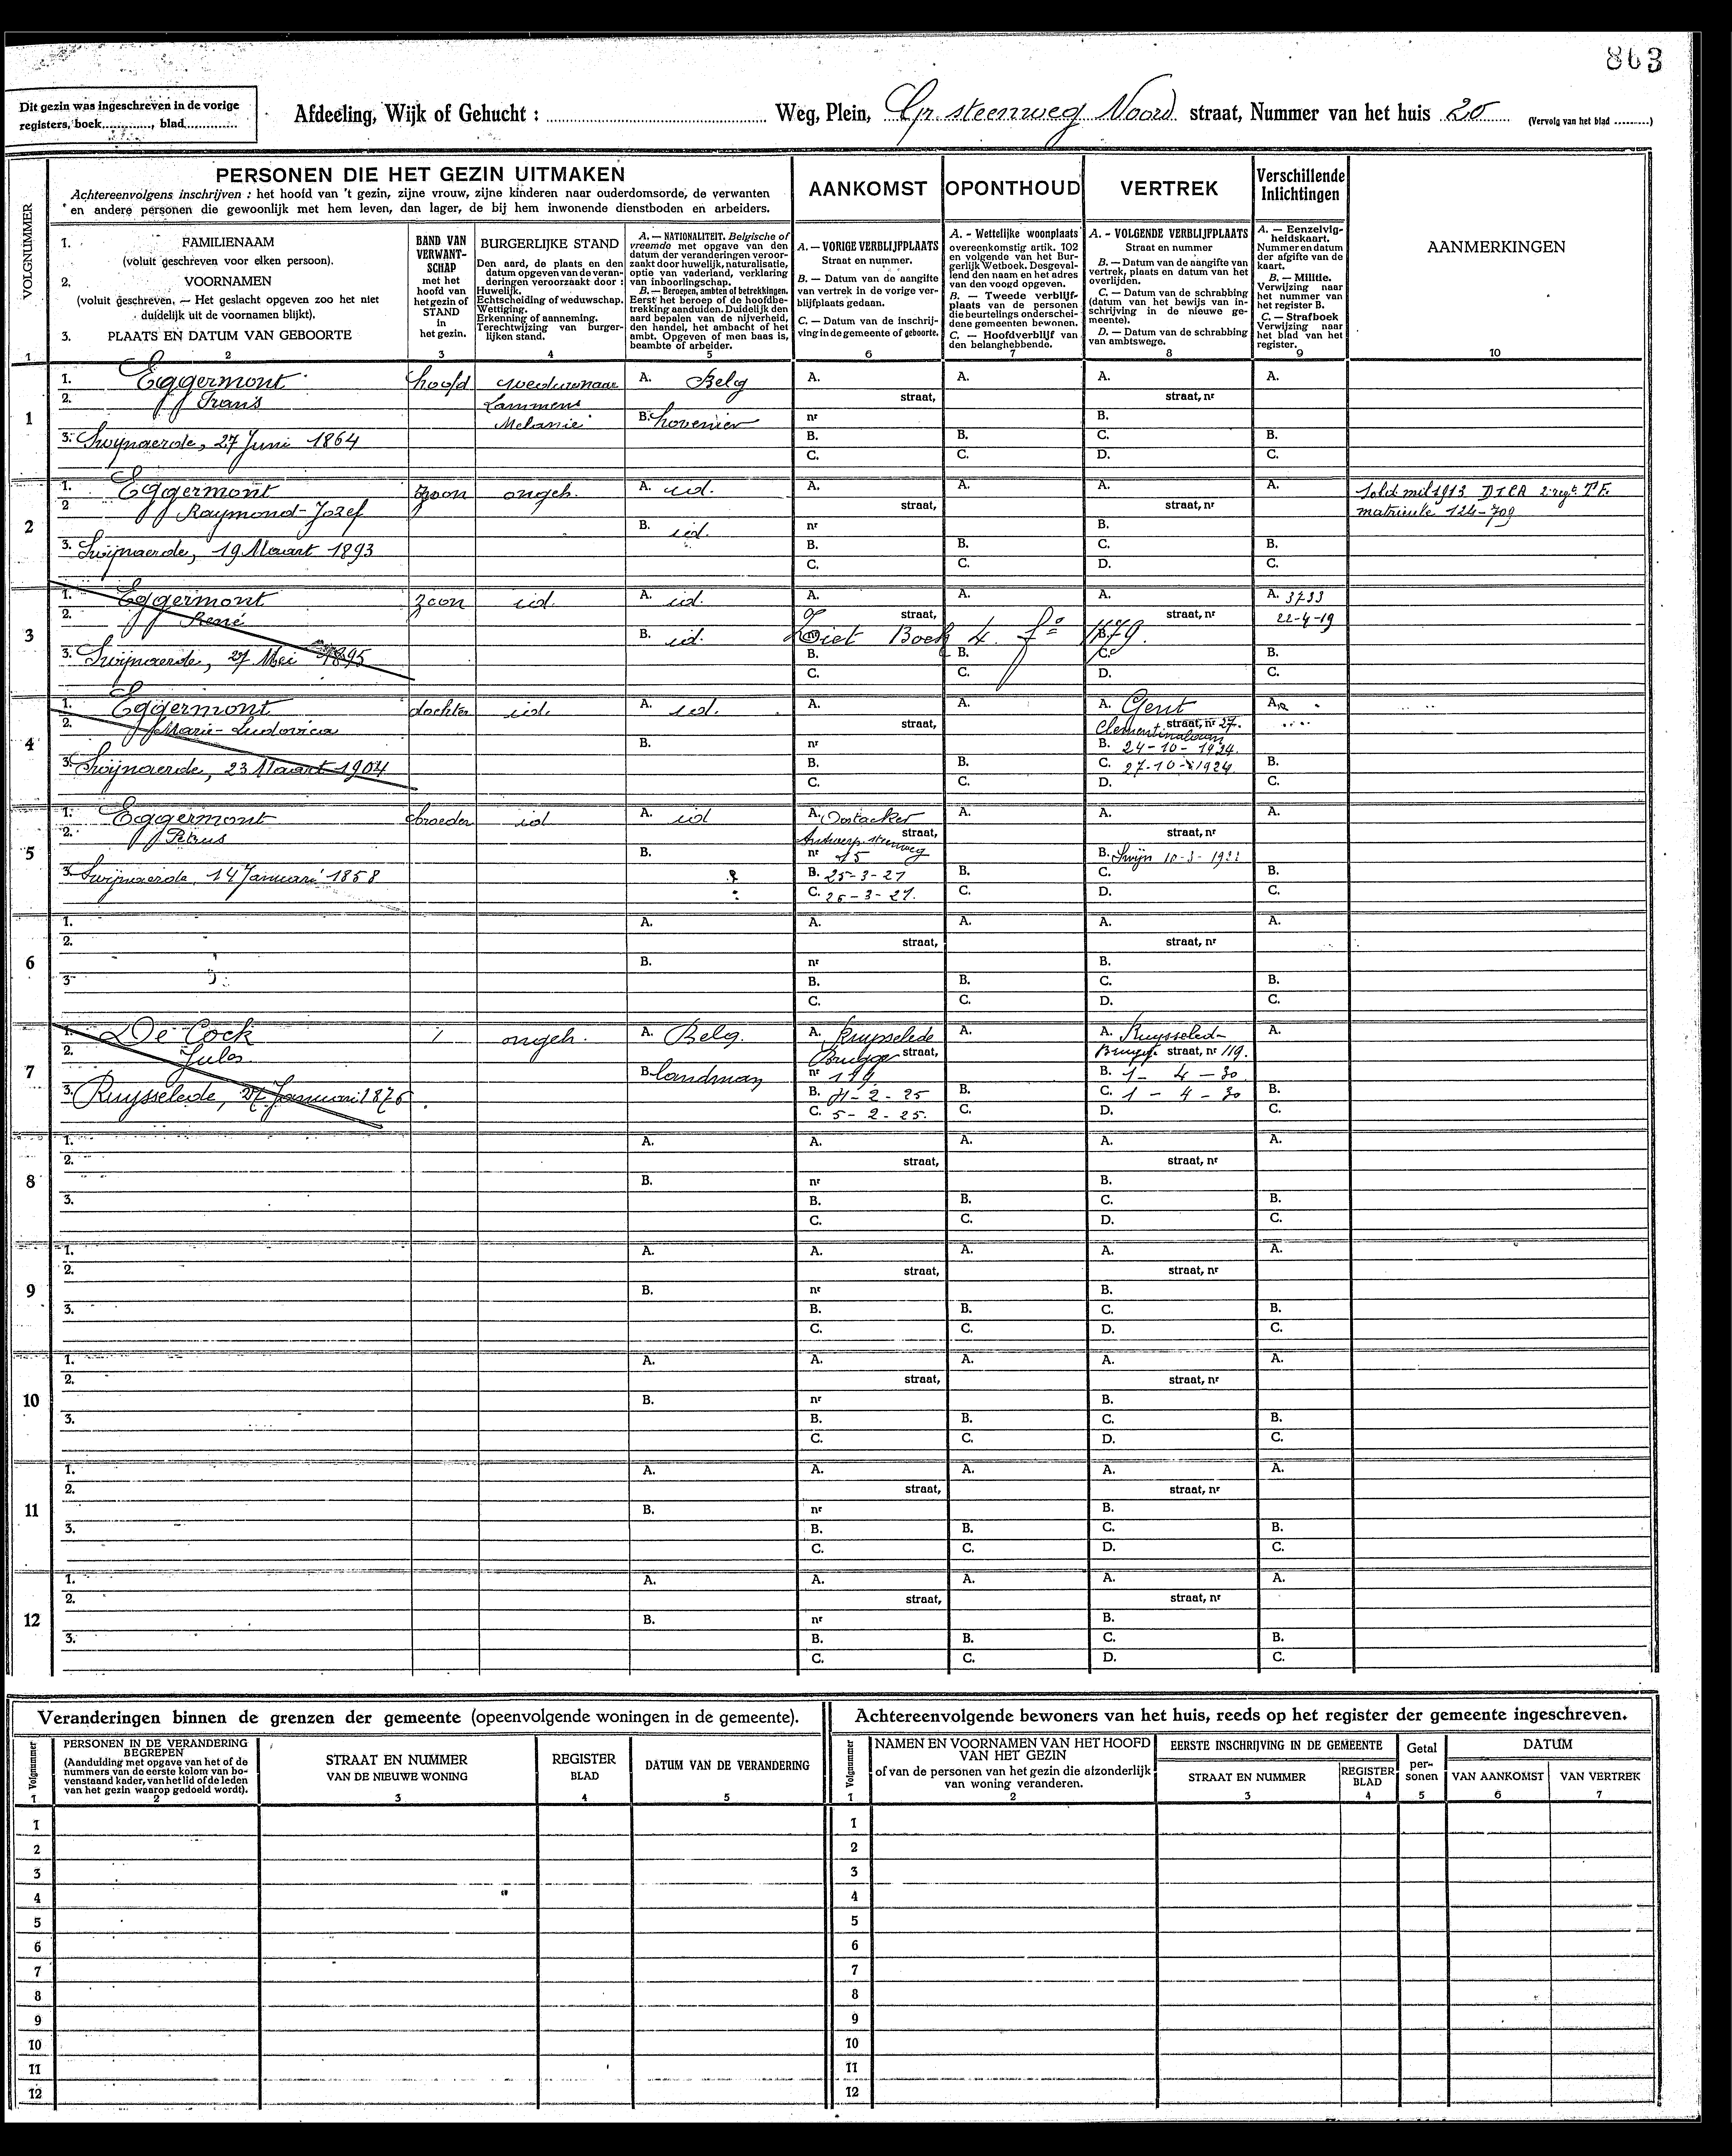 863
Dit gezin was ingeschreven in de vorige
registers, boek............, blad.............
Afdeeling, Wijk of Gehucht : ............ Weg, Plein, Gr. steenweg Noord straat, Nummer van het huis 20 (Vervolg van het blad .........)
VOLGNUMMER
PERSONEN DIE HET GEZIN UITMAKEN
Achtereenvolgens inschrijven : het hoofd van 't gezin, zijne vrouw, zijne kinderen naar ouderdomsorde, de verwanten
en andere personen die gewoonlijk met hem leven, dan lager, de bij hem inwonende dienstboden en arbeiders.
AANKOMST
OPONTHOUD
VERTREK
Verschillende
Inlichtingen
1. FAMILIENAAM
(voluit geschreven voor elken persoon).
2. VOORNAMEN
(voluit geschreven. — Het geslacht opgeven zoo het niet
duidelijk uit de voornamen blijkt).
3. PLAATS EN DATUM VAN GEBOORTE
BAND VAN
VERWANT-
SCHAP
met het
hoofd van
het gezin of
STAND
in
het gezin.
BURGERLIJKE STAND
Den aard, de plaats en den
datum opgeven van de veran-
deringen veroorzaakt door :
Huwelijk.
Echtscheiding of weduwschap.
Wettiging.
Erkenning of aanneming.
Terechtwijzing van burger-
lijken stand.
A. — NATIONALITEIT. Belgische of
vreemde met opgave van den
datum der veranderingen veroor-
zaakt door huwelijk, naturalisatie,
optie van vaderland, verklaring
van inboorlingschap.
B. — Beroepen, ambten of betrekkingen.
Eerst het beroep of de hoofdbe-
trekking aanduiden. Duidelijk den
aard bepalen van de nijverheid,
den handel, het ambacht of het
ambt. Opgeven of men baas is,
beambte of arbeider.
A. — VORIGE VERBLIJFPLAATS
Straat en nummer.
B. — Datum van de aangifte
van vertrek in de vorige ver-
blijfplaats gedaan.
C. — Datum van de inschrij-
ving in de gemeente of geboorte.
A. - Wettelijke woonplaats
overeenkomstig artik. 102
en volgende van het Bur-
gerlijk Wetboek. Desgeval-
lend den naam en het adres
van den voogd opgeven.
B. — Tweede verblijf-
plaats van de personen
die beurtelings onderschei-
dene gemeenten bewonen.
C. — Hoofdverblijf van
den belanghebbende.
A. - VOLGENDE VERBLIJFPLAATS
Straat en nummer
B. — Datum van de aangifte van
vertrek, plaats en datum van het
overlijden.
C. — Datum van de schrabbing
(datum van het bewijs van in-
schrijving in de nieuwe ge-
meente).
D. — Datum van de schrabbing
van ambtswege.
A. — Eenzelvig-
heidskaart.
Nummer en datum
der afgifte van de
kaart.
B. — Militie.
Verwijzing naar
het nummer van
het register B.
C. — Strafboek
Verwijzing naar
het blad van het
register.
AANMERKINGEN
1 2 3 4 5 6 7 8 9 10
1. Eggermont hoofd weduwnaar A. Belg A. A. A. A.
2. Frans Lammens straat, straat, nr
1 Melanie B. hovenier nr B.
3. Swynaerde, 27 Juni 1864 B. B. C. B.
C. C. D. C.
1. Eggermont zoon ongeh. A. id. A. A. A. A.
2 Raymond-Jozef straat, straat, nr matricule 124-709
2 B. id. nr B.
3. Swijnaerde, 19 Maart 1893 B. B. C. B.
C. C. D. C.
1. Eggermont zoon id. A. id. A. A. A. A. 3733
2. René straat, straat, nr 22-4-19
3 B. id. Ziet Boek 4. fo 1679.
3. Swijnaerde, 27 Mei 1895 B. B. C. B.
C. C. D. C.
1. Eggermont dochter id. A. id. A. A. A. Gent A.
2. Marie-Ludovica straat, Clementinalaan straat, nr 27.
4 B. nr B. 24-10-1924.
3. Swijnaerde, 23 Maart 1904 B. B. C. 27-10-1924 B.
C. C. D. C.
1. Eggermont broeder id A. id A. Oostacker A. A. A.
2. Petrus Antwerp. steenweg straat, straat, nr
5 B. nr 75 B. Swijn 10-3-1922
3. Swijnaerde, 14 Januari 1858 B. 25-3-21 B. C. B.
C. 26-3-21. C. D. C.
1. A. A. A. A. A.
2. straat, straat, nr
6 B. nr B.
3 B. B. C. B.
C. C. D. C.
1. De Cock ongeh. A. Belg. A. Ruysselede A. A. Ruysseled- A.
2. Jules Brugge straat, Brugge straat, nr 119.
7 B. landman nr 119 B. 1-4-30
3. Ruysselede, 27 Januari 1876. B. 4-2-25 B. C. 1-4-30 B.
C. 5-2-25. C. D. C.
1. A. A. A. A. A.
2. straat, straat, nr
8 B. nr B.
3. B. B. C. B.
C. C. D. C.
1. A. A. A. A. A.
2. straat, straat, nr
9 B. nr B.
3. B. B. C. B.
C. C. D. C.
1. A. A. A. A. A.
2. straat, straat, nr
10 B. nr B.
3. B. B. C. B.
C. C. D. C.
1. A. A. A. A. A.
2. straat, straat, nr
11 B. nr B.
3. B. B. C. B.
C. C. D. C.
1. A. A. A. A. A.
2. straat, straat, nr
12 B. nr B.
3. B. B. C. B.
C. C. D. C.
Veranderingen binnen de grenzen der gemeente (opeenvolgende woningen in de gemeente).
Volgnummer
PERSONEN IN DE VERANDERING
BEGREPEN
(Aanduiding met opgave van het of de
nummers van de eerste kolom van bo-
venstaand kader, van het lid of de leden
van het gezin waarop gedoeld wordt).
STRAAT EN NUMMER
VAN DE NIEUWE WONING
REGISTER
BLAD
DATUM VAN DE VERANDERING
1 2 3 4 5
1
2
3
4
5
6
7
8
9
10
11
12
Achtereenvolgende bewoners van het huis, reeds op het register der gemeente ingeschreven.
Volgnummer
NAMEN EN VOORNAMEN VAN HET HOOFD
VAN HET GEZIN
of van de personen van het gezin die afzonderlijk
van woning veranderen.
EERSTE INSCHRIJVING IN DE GEMEENTE
STRAAT EN NUMMER
REGISTER
BLAD
Getal
per-
sonen
DATUM
VAN AANKOMST VAN VERTREK
1 2 3 4 5 6 7
1
2
3
4
5
6
7
8
9
10
11
12